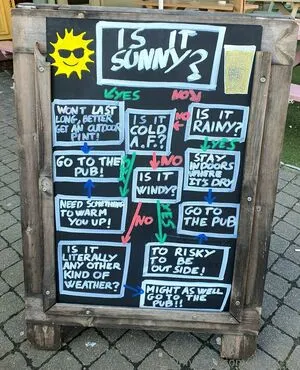 IS IT
SUNNY?
YES
NO
WONT LAST
LONG, BETTER
GET AN OUTDOOR
PINT!
IS IT
COLD
A.F.?
NO
IS IT
RAINY?
YES
GO TO THE
PUB!
YES
NO
STAY
INDOORS
WHERE
IT'S DRY
IS IT
WINDY?
NEED SOMETHING
TO WARM
YOU UP!
NO
YES
GO TO THE
PUB
IS IT
LITERALLY
ANY OTHER
KIND OF
WEATHER?
TO RISKY
TO BE
OUTSIDE!
MIGHT AS WELL
GO TO THE
PUB!!